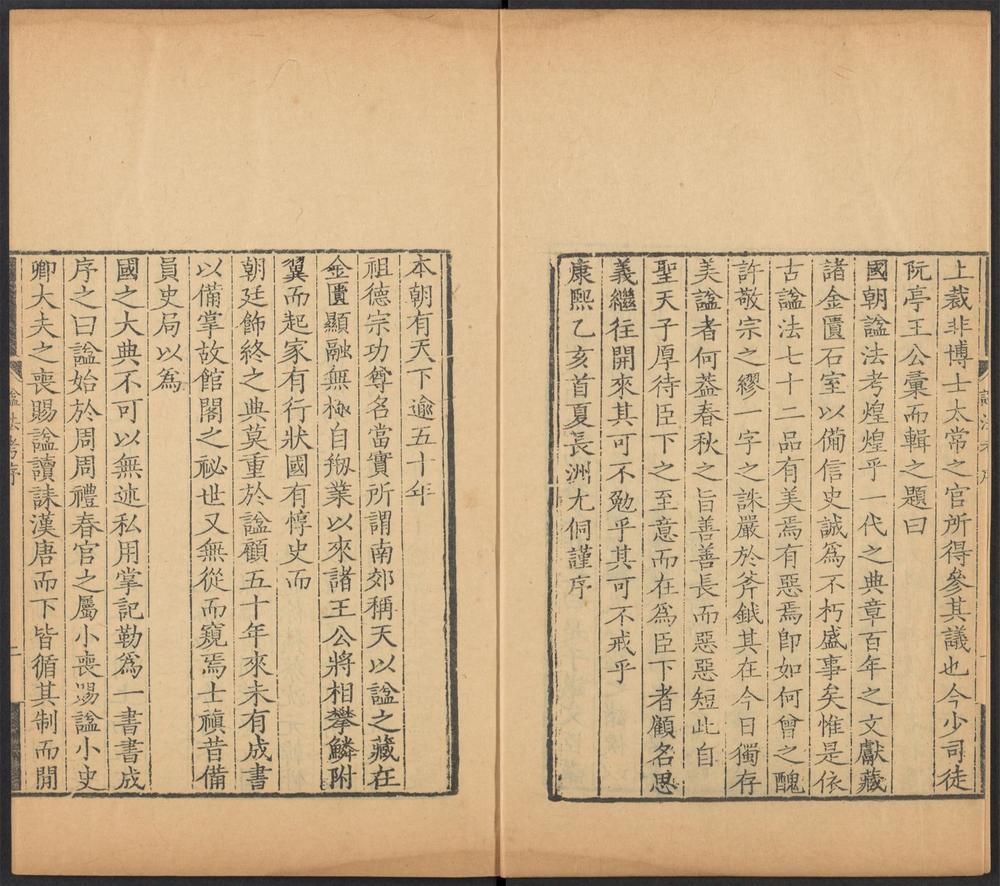 上裁非博士太常之官所得參其議也今少司徒
阮亭王公彙而輯之題曰
國朝諡法考煌煌乎一代之典章百年之文獻藏
諸金匱石室以備信史誠為不朽盛事矣惟是依
古諡法七十二品有美焉有惡焉卽如何曾之醜
許敬宗之繆一字之誅嚴於斧鉞其在今日獨存
美諡者何葢春秋之旨善善長而惡惡短此自
聖天子厚待臣下之至意而在為臣下者顧名思
義繼往開來其可不勉乎其可不戒乎
康熙乙亥首夏長洲尤侗謹序
本朝有天下逾五十年
祖德宗功尊名當實所謂南郊稱天以諡之藏在
金匱顯融無極自剏業以來諸王公將相攀鱗附
翼而起家有行狀國有惇史而
朝廷飾終之典莫重於諡顧五十年來未有成書
以備掌故館閣之祕世又無從而窺焉士禛昔備
員史局以為
國之大典不可以無述私用掌記勒為一書書成
序之曰諡始於周周禮春官之屬小喪賜諡小史
卿大夫之喪賜諡讀誄漢唐而下皆循其制而閒
諡法考序
二